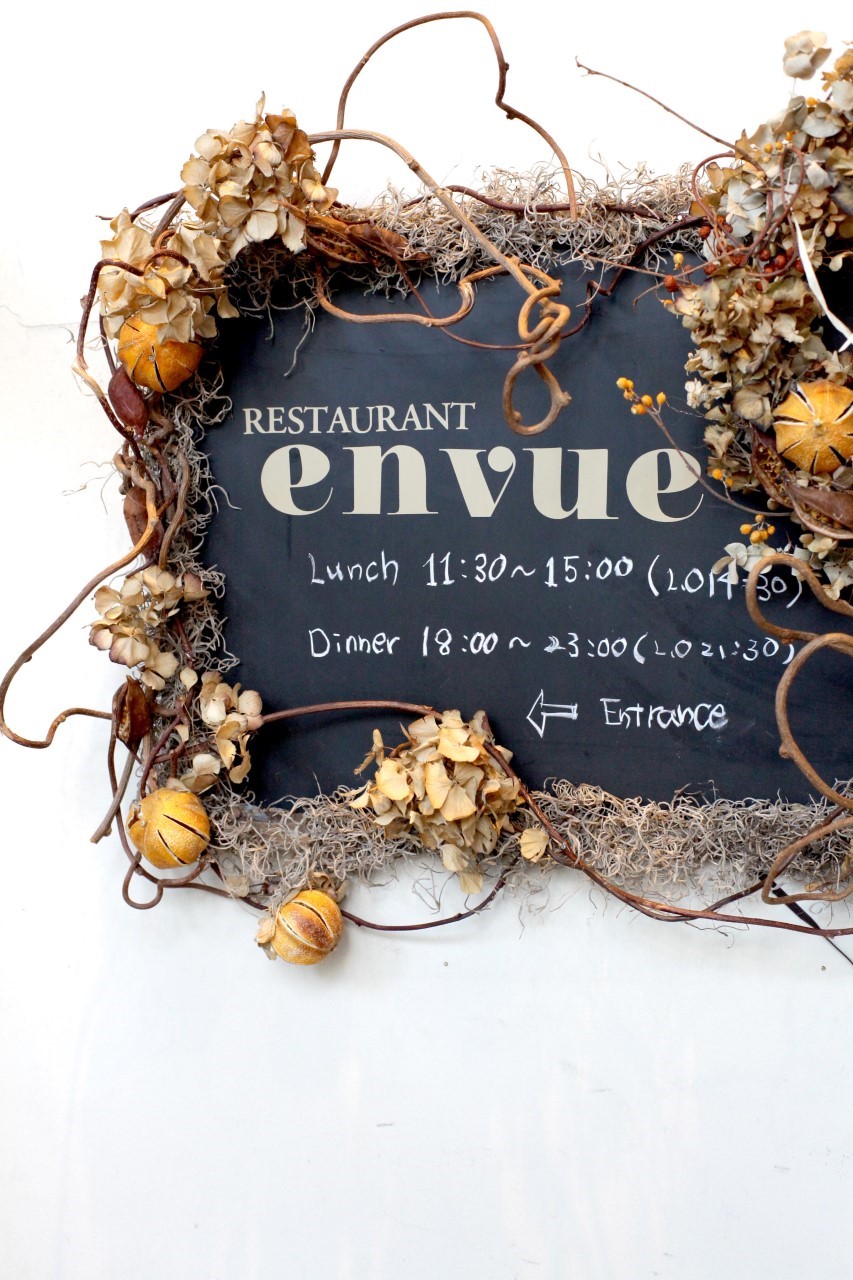 RESTAURANT
envue
Lunch 11:30~15:00 (L.O14:30)
Dinner 18:00~23:00(L.O 21:30)
Entrance